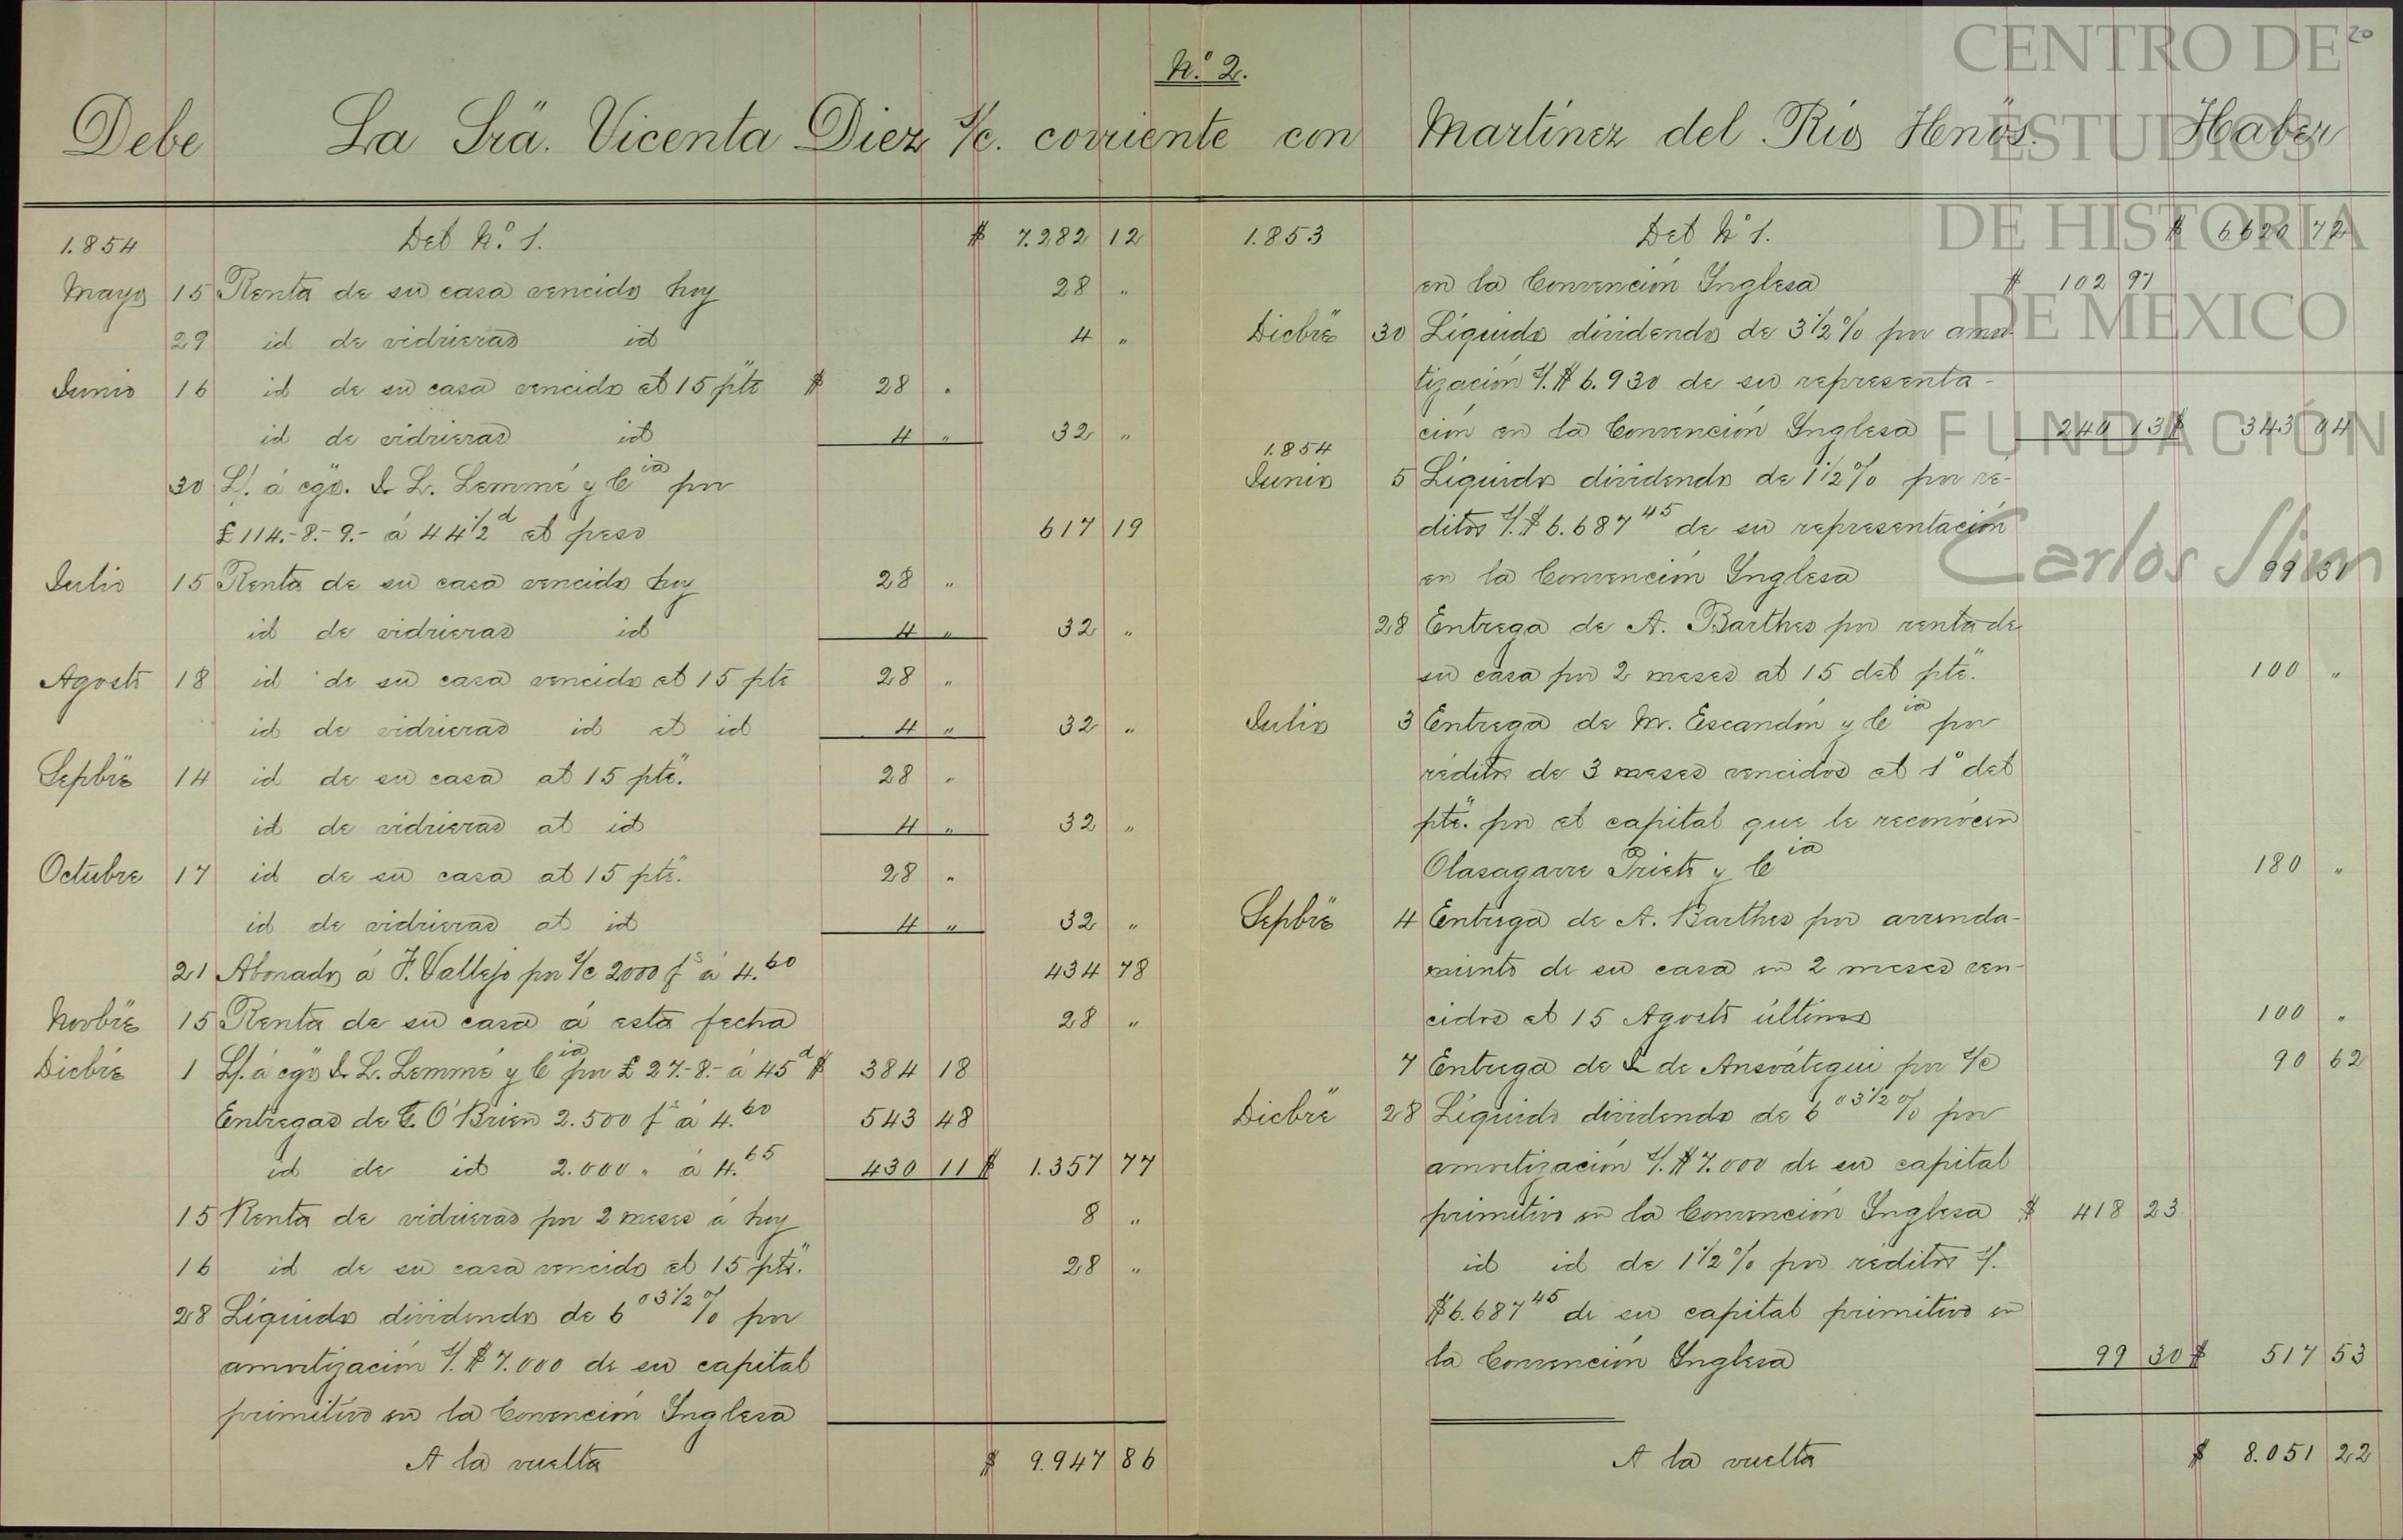 20
N.º 2.
Debe La Srã. Vicenta Diez s/c. corriente con Martínez del Río Henõs. Haber
1.854 Del N.º 1. $ 7.282 12
Mayo 15 Renta de su casa vencido hoy 28 "
29 id de vidrieras id 4 "
Junio 16 id de su casa vencido el 15 ptẽ $ 28 "
id de vidrieras id 4 " 32 "
30 L/. á cgõ. de L. Lemmé y Cia por
£ 114.-8.-9.- á 44 1/2 d el peso 617 19
Julio 15 Renta de su casa vencida hoy 28 "
id de vidrieras id 4 " 32 "
Agosto 18 id de su casa vencido el 15 pte 28 "
id de vidrieras id el id 4 " 32 "
Sepbrẽ 14 id de su casa al 15 ptẽ. 28 "
id de vidrieras al id 4 " 32 "
Octubre 17 id de su casa al 15 ptẽ. 28 "
id de vidrieras al id 4 " 32 "
21 Abonado á F. Vallejo por s/c 2000 fs á 4.60 434 78
Novbrẽ 15 Renta de su casa á esta fecha 28 "
Dicbrẽ 1 L/. á cgõ de L. Lemmé y Cia por £ 27.-8.- á 45 d $ 384 18
Entregas de G. O'Brien 2.500 fs á 4.60 543 48
id de id 2.000 " á 4.65 430 11 $ 1.357 77
15 Renta de vidrieras por 2 meses á hoy 8 "
16 id de su casa vencido el 15 ptẽ. 28 "
28 Líquido dividendo de 6 03 1/2 % por
amortización s/. $ 7.000 de su capital
primitivo en la Convención Inglesa
A la vuelta $ 9.947 86
1.853 Del Nº 1. $ 6.620 72
en la Convención Inglesa $ 102 97
Dicbrẽ 30 Líquido dividendo de 3 1/2 % por amor-
tización s/. $ 6.930 de su representa-
ción en la Convención Inglesa 240 13 $ 343 04
1.854
Junio 5 Líquido dividendo de 1 1/2 % por ré-
ditos s/. $ 6.687 45 de su representación
en la Convención Inglesa 99 31
28 Entrega de A. Barthes por renta de
su casa por 2 meses al 15 del ptẽ. 100 "
Julio 3 Entrega de M. Escandón y Cia por
réditos de 3 meses vencidos el 1º del
ptẽ. por el capital que le reconócen
Olasagarre Prieto y Cia 180 "
Sepbrẽ 4 Entrega de A. Barthes por arrenda-
miento de su casa en 2 meses ven-
cidos el 15 Agosto último 100 "
7 Entrega de J. de Ansoátegui por s/c 90 62
Dicbrẽ 28 Líquido dividendo de 6 03 1/2 % por
amortización s/. $ 7.000 de su capital
primitivo en la Convención Inglesa $ 418 23
id id de 1 1/2 % por réditos s/.
$ 6.687 45 de su capital primitivo en
la Convención Inglesa 99 30 $ 517 53
A la vuelta $ 8.051 22
CENTRO DE
ESTUDIOS
DE HISTORIA
DE MEXICO
FUNDACIÓN
Carlos Slim